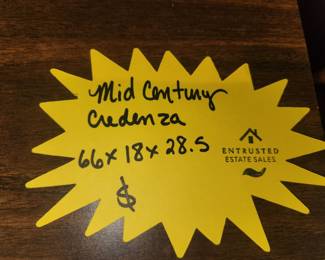 Mid Century
Credenza
66x18x28.5
$
ENTRUSTED
ESTATE SALES